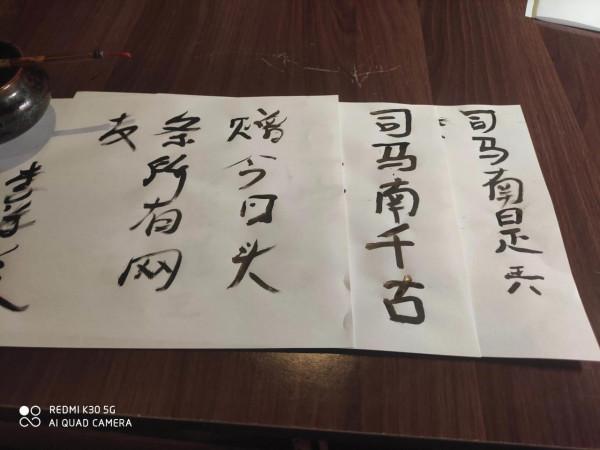 司马南是
司马南千古
赠今日头
条所有网
友
REDMI K30 5G
AI QUAD CAMERA